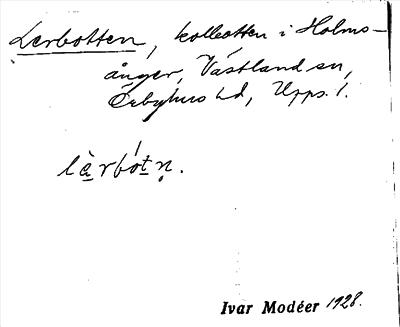 Lerbotten, kolbotten i Holms-
ånger, Västland sn,
Örbyhus hd, Upps. l.
làrbótṇ.
Ivar Modéer 1928.